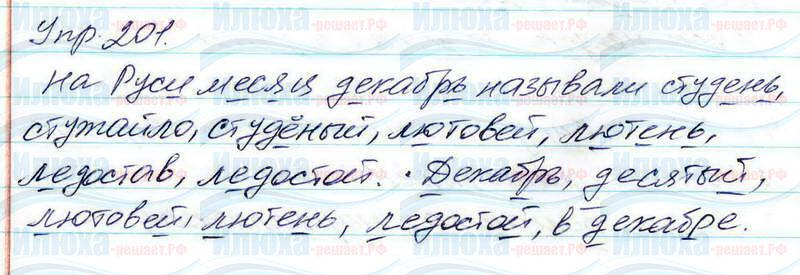 Упр. 201.
На Руси месяц декабрь называли студень,
стужайло, студёный, лютовей, лютень,
ледостав, ледостой. Декабрь, десятый,
лютовей, лютень, ледостой, в декабре.